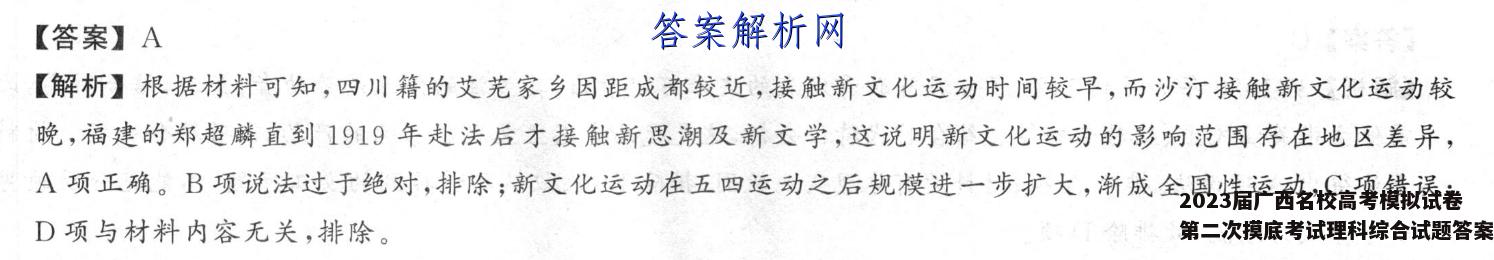 答案解析网
【答案】A
【解析】根据材料可知,四川籍的艾芜家乡因距成都较近,接触新文化运动时间较早,而沙汀接触新文化运动较
晚,福建的郑超麟直到 1919 年赴法后才接触新思潮及新文学,这说明新文化运动的影响范围存在地区差异,
A 项正确。B 项说法过于绝对,排除;新文化运动在五四运动之后规模进一步扩大,渐成全国性运动,C 项错误;
D 项与材料内容无关,排除。
2023届广西名校高考模拟试卷
第二次摸底考试理科综合试题答案